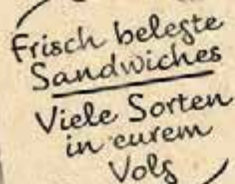 Frisch belegte
Sandwiches
Viele Sorten
in eurem
Volg